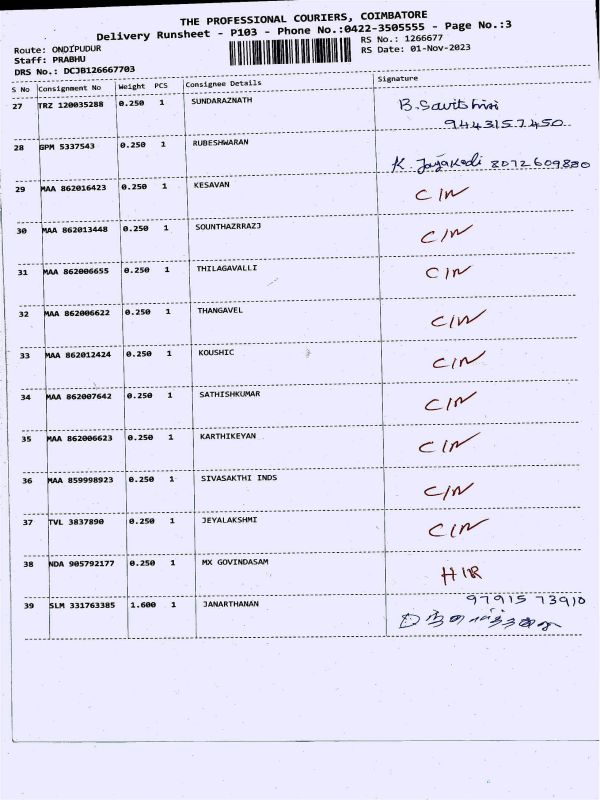 THE PROFESSIONAL COURIERS, COIMBATORE
Delivery Runsheet - P103 - Phone No.:0422-3505555 - Page No.:3
Route: ONDIPUDUR
RS No.: 1266677
Staff: PRABHU
RS Date: 01-Nov-2023
DRS No.: DCJB126667703
S No Consignment No Weight PCS Consignee Details Signature
27 TRZ 120035288 0.250 1 SUNDARAZNATH B. Savithri
9443157450
28 GPM 5337543 0.250 1 RUBESHWARAN
K. Jayakodi 8072609880
29 MAA 862016423 0.250 1 KESAVAN C/N
30 MAA 862013448 0.250 1 SOUNTHAZRRAZJ C/N
31 MAA 862006655 0.250 1 THILAGAVALLI C/N
32 MAA 862006622 0.250 1 THANGAVEL C/N
33 MAA 862012424 0.250 1 KOUSHIC C/N
34 MAA 862007642 0.250 1 SATHISHKUMAR C/N
35 MAA 862006623 0.250 1 KARTHIKEYAN C/N
36 MAA 859998923 0.250 1 SIVASAKTHI INDS C/N
37 TVL 3837890 0.250 1 JEYALAKSHMI C/N
38 NDA 905792177 0.250 1 MX GOVINDASAM HIR
39 SLM 331763385 1.600 1 JANARTHANAN 97915 73910